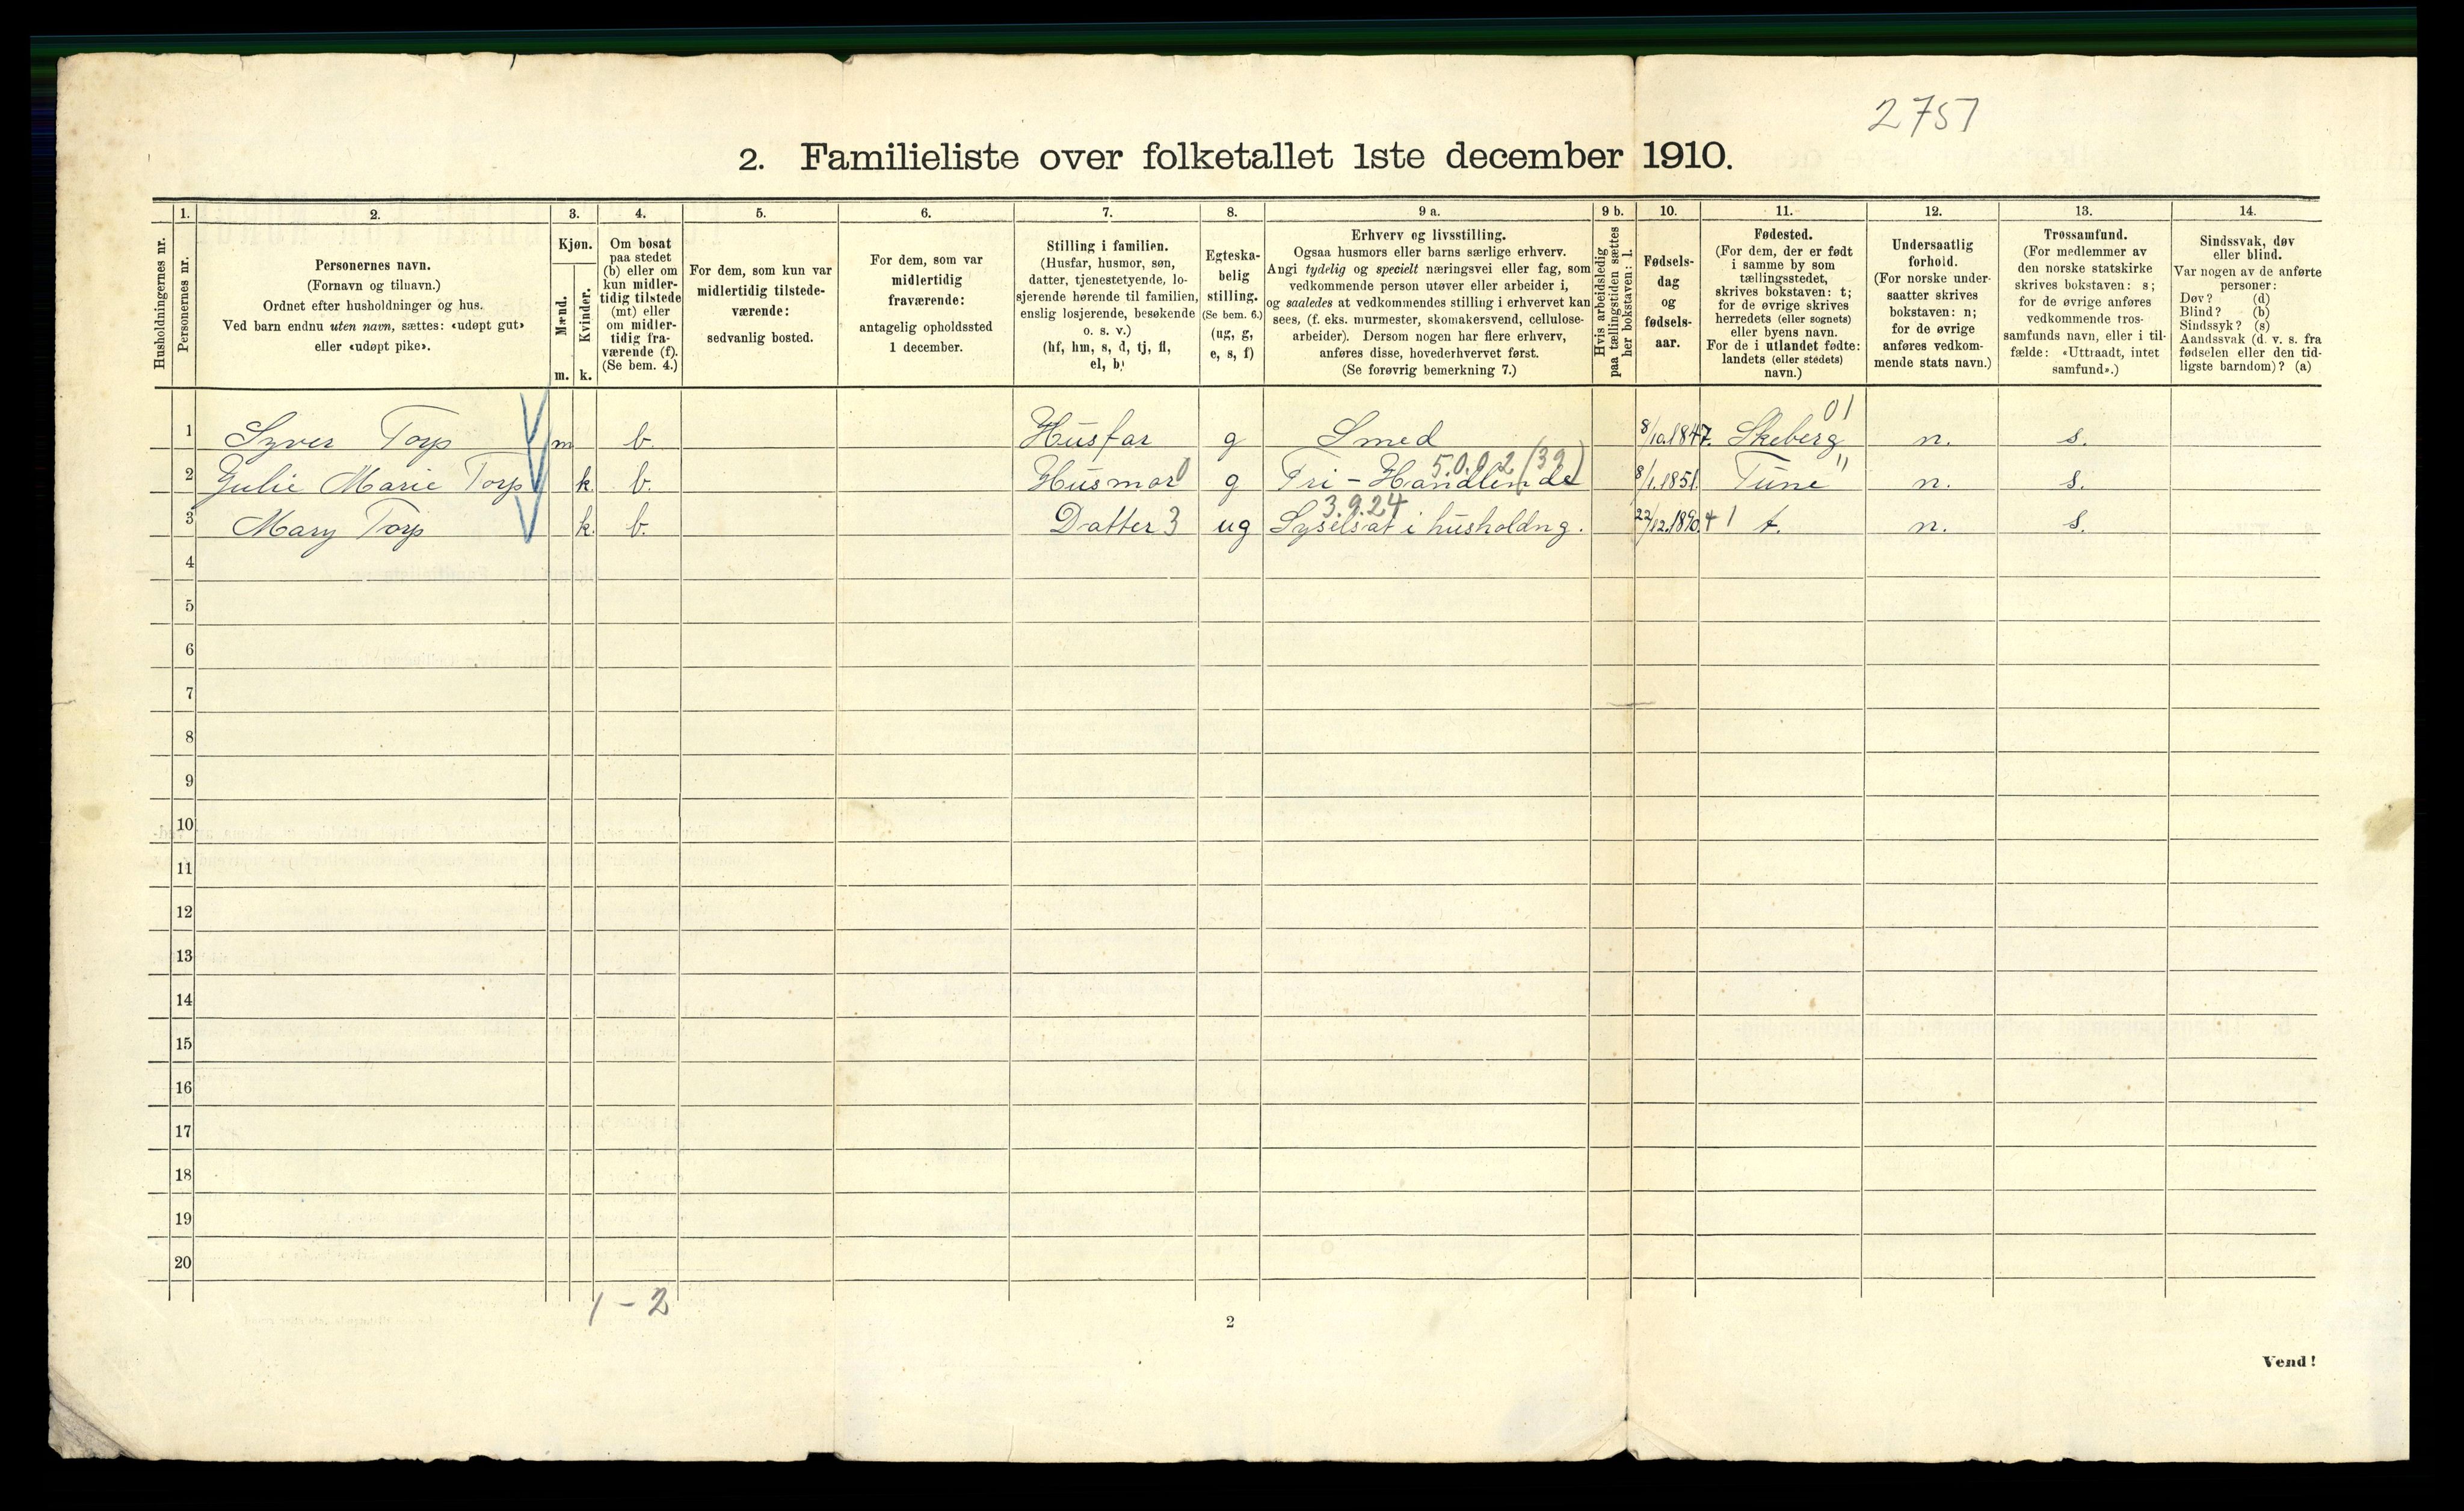 2757
2. Familieliste over folketallet 1ste december 1910.
1. 2. 3. 4. 5. 6. 7. 8. 9 a. 9 b. 10. 11. 12. 13. 14.
Husholdningernes nr.
Personernes nr.
Personernes navn.
(Fornavn og tilnavn.)
Ordnet efter husholdninger og hus.
Ved barn endnu uten navn, sættes: «udøpt gut»
eller «udøpt pike».
Kjøn.
Mænd.
Kvinder.
m. k.
Om bosat
paa stedet
(b) eller om
kun midler-
tidig tilstede
(mt) eller
om midler-
tidig fra-
værende (f).
(Se bem. 4.)
For dem, som kun var
midlertidig tilstede-
værende:
sedvanlig bosted.
For dem, som var
midlertidig
fraværende:
antagelig opholdssted
1 december.
Stilling i familien.
(Husfar, husmor, søn,
datter, tjenestetyende, lo-
sjerende hørende til familien,
enslig losjerende, besøkende
o. s. v.)
(hf, hm, s, d, tj, fl,
el, b)
Egteska-
belig
stilling.
(Se bem. 6.)
(ug, g,
e, s, f)
Erhverv og livsstilling.
Ogsaa husmors eller barns særlige erhverv.
Angi tydelig og specielt næringsvei eller fag, som
vedkommende person utøver eller arbeider i,
og saaledes at vedkommendes stilling i erhvervet kan
sees, (f. eks. murmester, skomakersvend, cellulose-
arbeider). Dersom nogen har flere erhverv,
anføres disse, hovederhvervet først.
(Se forøvrig bemerkning 7.)
Hvis arbeidsledig
paa tællingstiden sættes
her bokstaven: l.
Fødsels-
dag
og
fødsels-
aar.
Fødested.
(For dem, der er født
i samme by som
tællingsstedet,
skrives bokstaven: t;
for de øvrige skrives
herredets (eller sognets)
eller byens navn.
For de i utlandet fødte:
landets (eller stedets)
navn.)
Undersaatlig
forhold.
(For norske under-
saatter skrives
bokstaven: n;
for de øvrige
anføres vedkom-
mende stats navn.)
Trossamfund.
(For medlemmer av
den norske statskirke
skrives bokstaven: s;
for de øvrige anføres
vedkommende tros-
samfunds navn, eller i til-
fælde: «Uttraadt, intet
samfund».)
Sindssvak, døv
eller blind.
Var nogen av de anførte
personer:
Døv? (d)
Blind? (b)
Sindssyk? (s)
Aandssvak (d. v. s. fra
fødselen eller den tid-
ligste barndom)? (a)
01
1 Syver Torp m b. Husfar g Smed 8/10.1847. Skeberg n. s.
5.0.02 (39) "
2 Julie Marie Torp k. b. Husmor 0 g Fri-Handlende 8/1.1851. Tune n. s.
3.9.24
3 Mary Torp k. b. Datter 3 ug Syselsat i husholdng. 22/12.1890 + 1 t. n. s.
4
5
6
7
8
9
10
11
12
13
14
15
16
17
18
19
20
1 - 2
2
Vend!